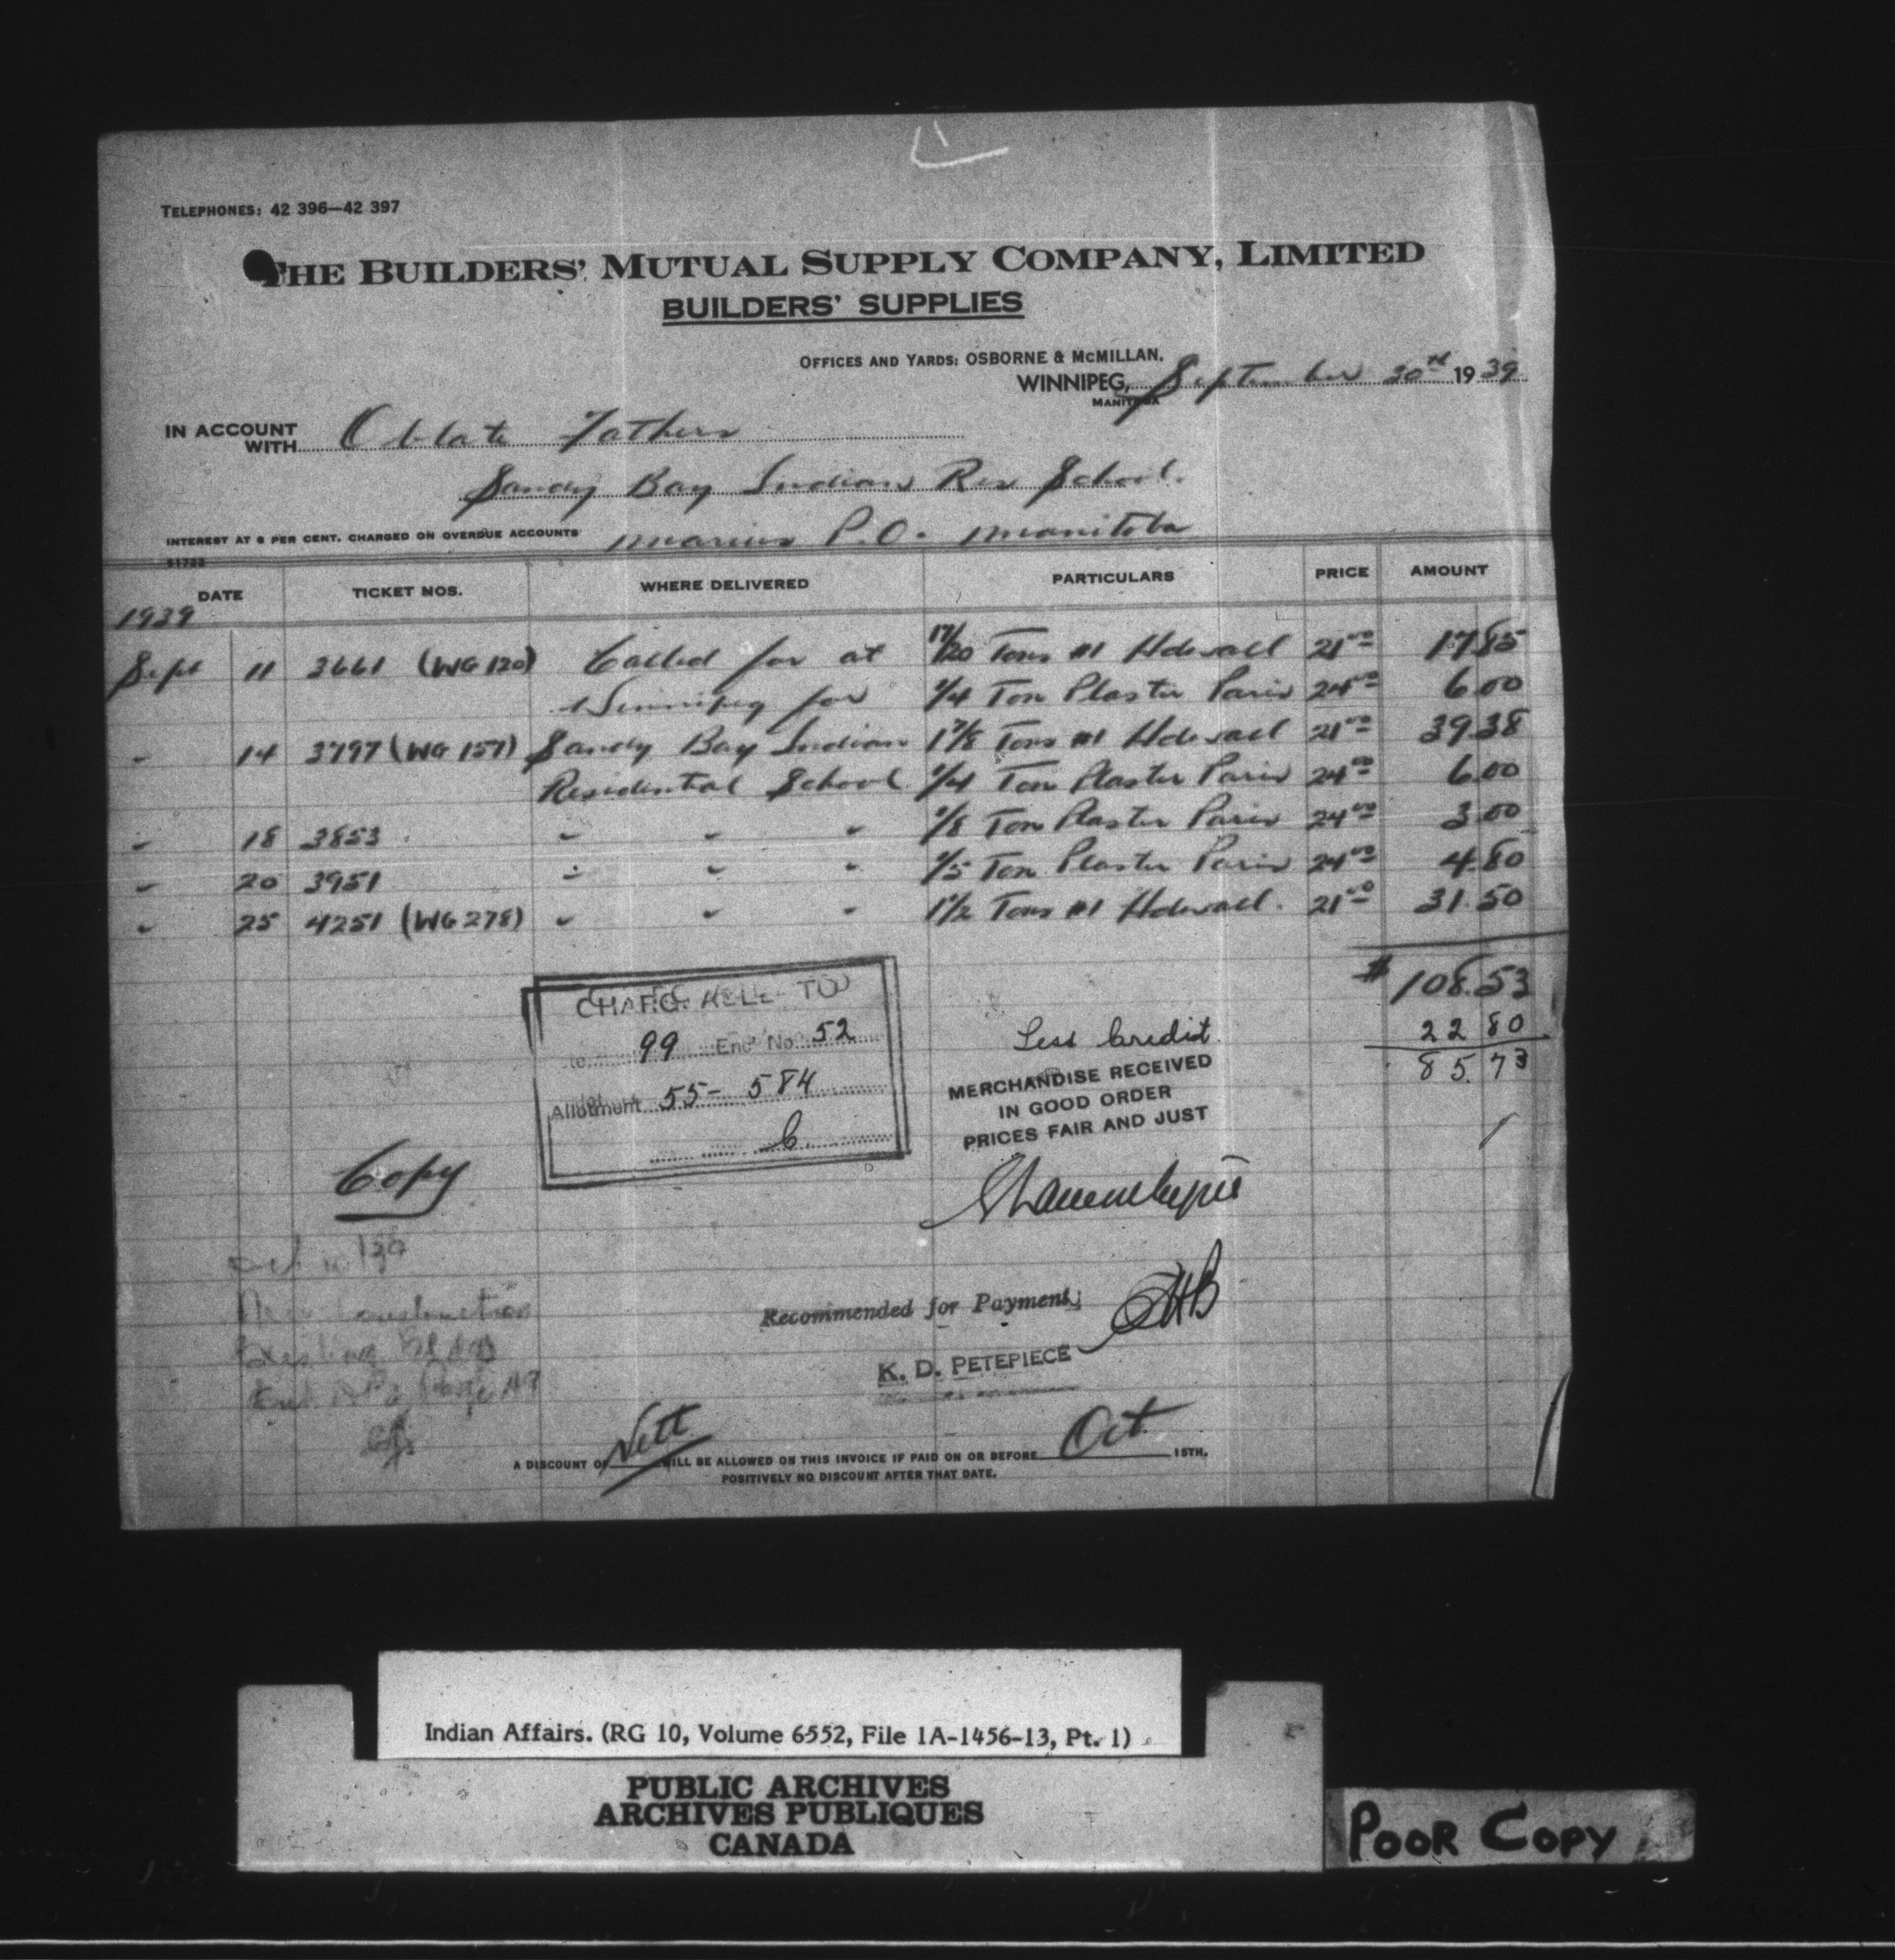 TELEPHONES: 42 396—42 397
THE BUILDERS' MUTUAL SUPPLY COMPANY, LIMITED
BUILDERS' SUPPLIES
OFFICES AND YARDS: OSBORNE & McMILLAN.
WINNIPEG, September 30th 1939
MANITOBA
IN ACCOUNT WITH Oblate Fathers
Sandy Bay Indian Res School.
INTEREST AT 8 PER CENT. CHARGED ON OVERDUE ACCOUNTS Marius P.O. Manitoba
51722
DATE TICKET NOS. WHERE DELIVERED PARTICULARS PRICE AMOUNT
1939
Sept 11 3661 (WG 120) Called for at 17/20 Tons #1 Hdwall 21.00 17.85
Winnipeg for 1/4 Ton Plaster Paris 24.00 6.00
" 14 3797 (WG 157) Sandy Bay Indian 1 7/8 Tons #1 Hdwall 21.00 39.38
Residential School 1/4 Ton Plaster Paris 24.00 6.00
" 18 3853 " " " 1/8 Ton Plaster Paris 24.00 3.00
" 20 3951 " " " 1/5 Ton Plaster Paris 24.00 4.80
" 25 4251 (WG 278) " " " 1 1/2 Tons #1 Hdwall. 21.00 31.50
$108.53
Less Credit 22 80
85.73
TO
99 Enc No 52
Allotment 55- 584
MERCHANDISE RECEIVED
IN GOOD ORDER
PRICES FAIR AND JUST
Copy
New Construction
Recommended for Payment;
K. D. PETEPIECE
A DISCOUNT OF Nett WILL BE ALLOWED ON THIS INVOICE IF PAID ON OR BEFORE Oct. 15TH.
POSITIVELY NO DISCOUNT AFTER THAT DATE.
Indian Affairs. (RG 10, Volume 6552, File 1A-1456-13, Pt. 1)
PUBLIC ARCHIVES
ARCHIVES PUBLIQUES
CANADA
POOR COPY